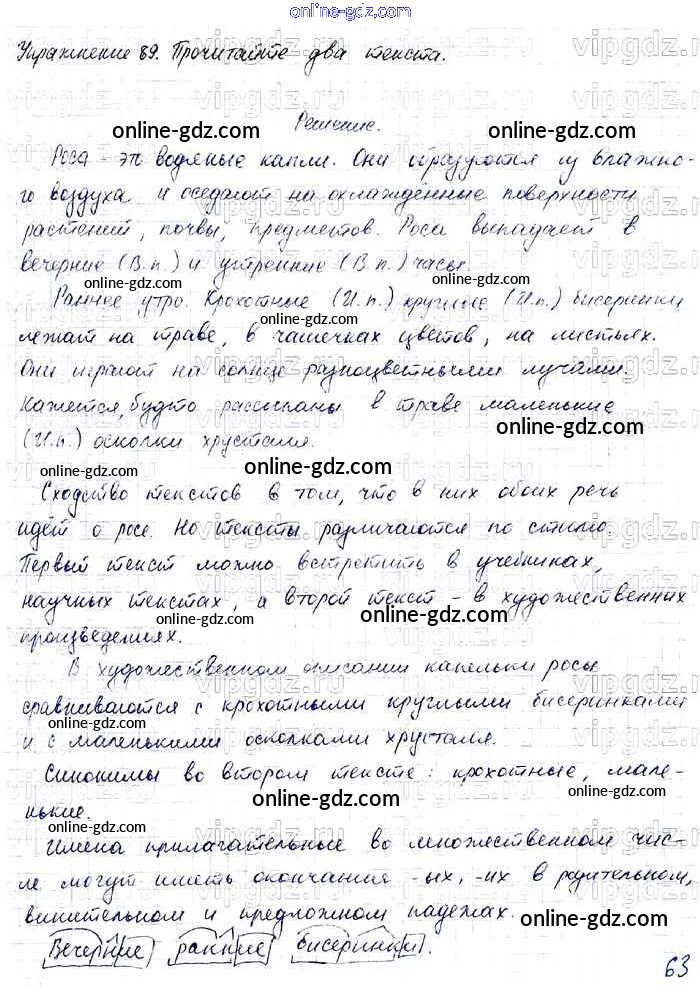 online-gdz.com
Упражнение 89. Прочитайте два текста.
Решение.
Роса - это водяные капли. Они образуются из влажно-
го воздуха и оседают на охлаждённые поверхности
растений, почвы, предметов. Роса выпадает в
вечерние (В.п.) и утренние (В.п.) часы.
Раннее утро. Крохотные (И.п.) круглые (И.п.) бисеринки
лежат на траве, в чашечках цветов, на листьях.
Они играют на солнце разноцветными лучами.
Кажется, будто рассыпаны в траве маленькие
(И.п.) осколки хрусталя.
Сходство текстов в том, что в них обоих речь
идёт о росе. Но тексты различаются по стилю.
Первый текст можно встретить в учебниках,
научных текстах, а второй текст - в художественных
произведениях.
В художественном описании капельки росы
сравниваются с крохотными круглыми бисеринками
и с маленькими осколками хрусталя.
Синонимы во втором тексте: крохотные, мале-
нькие.
Имена прилагательные во множественном чис-
ле могут иметь окончания -ых, -их в родительном,
винительном и предложном падежах.
Вечерние, ранние, бисеринки.
63